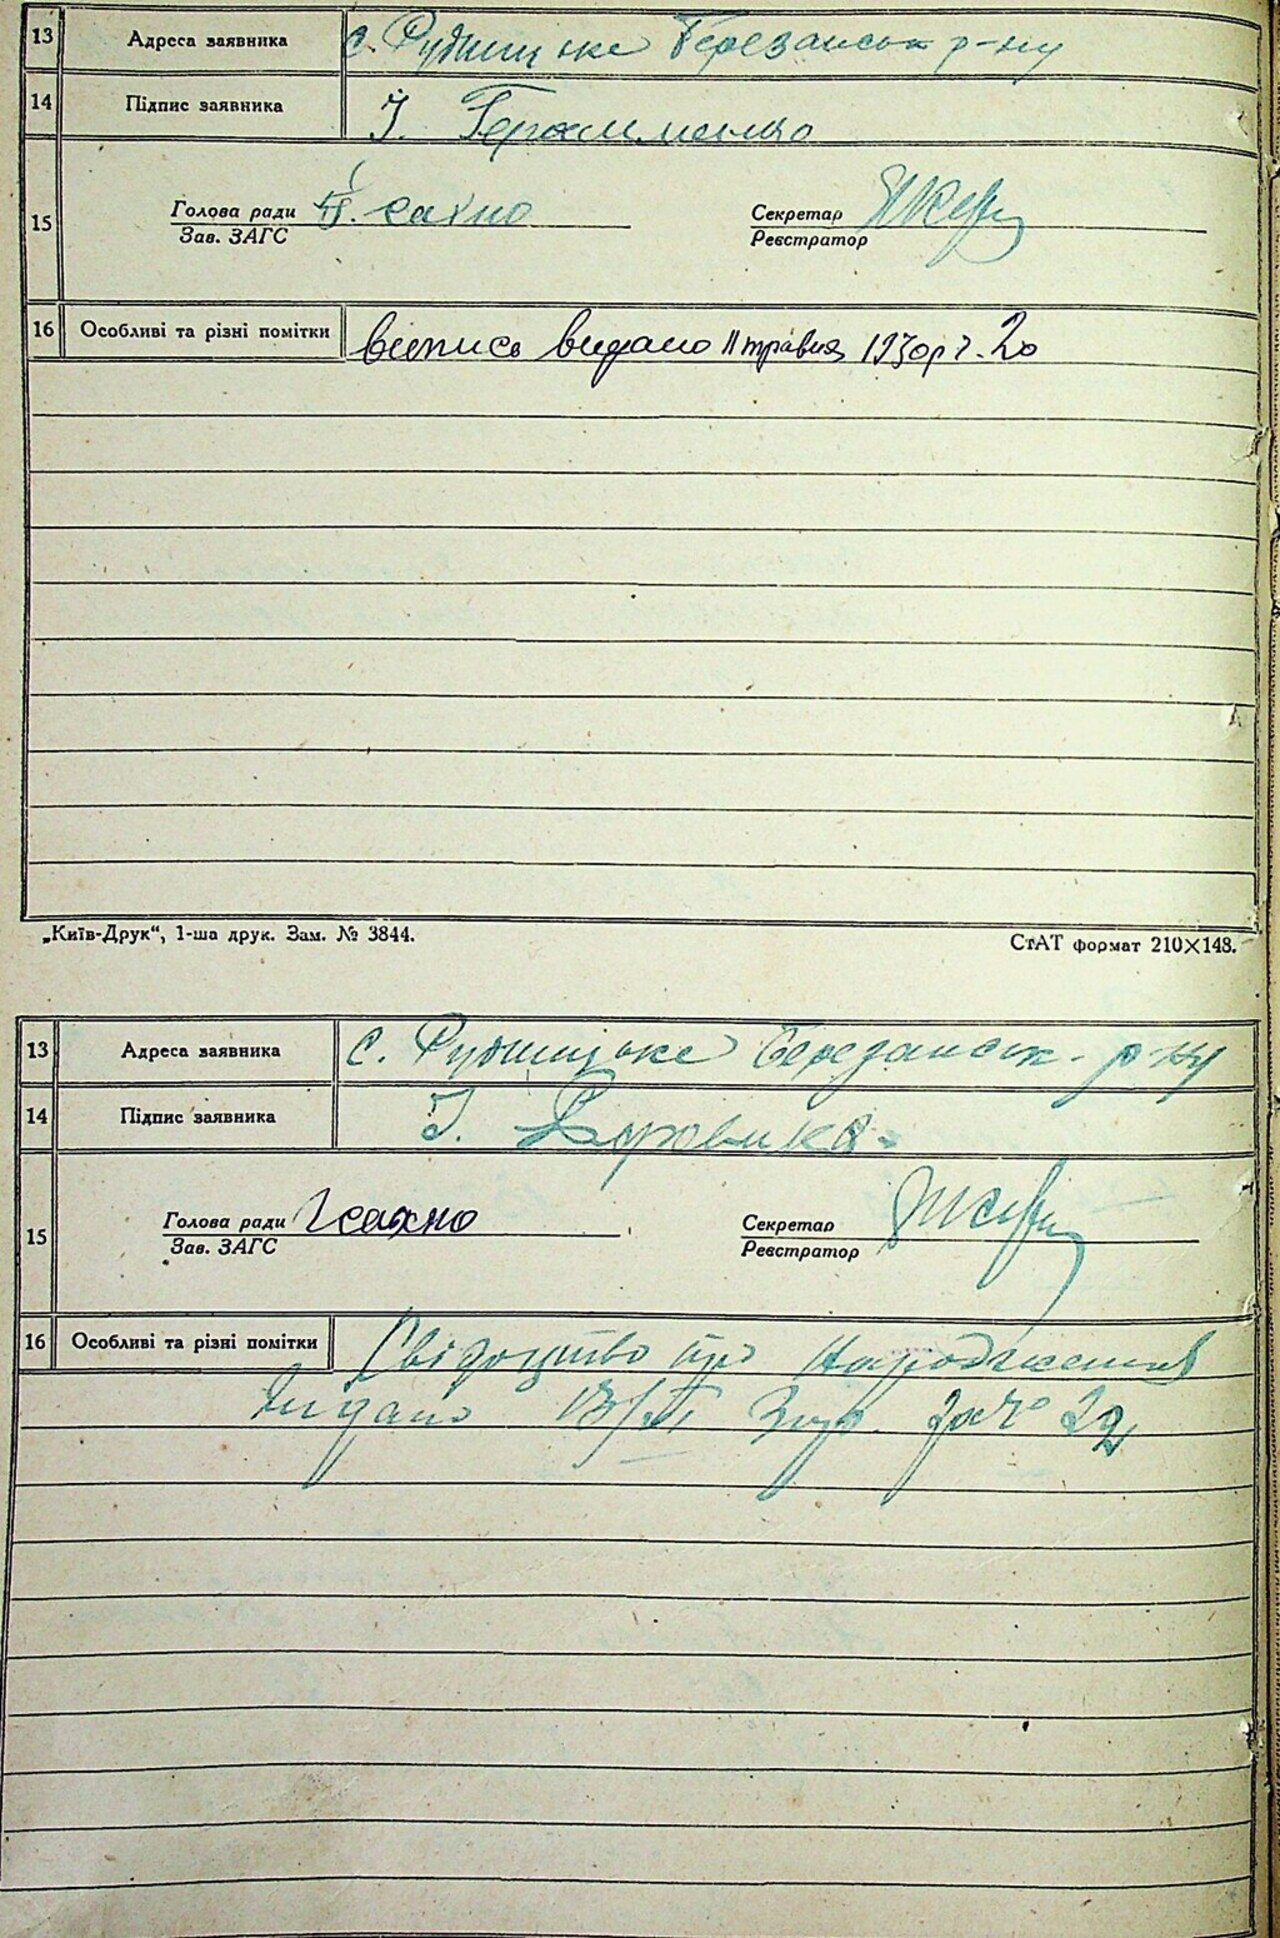 13 Адреса заявника с. Рудницьке Березанськ р-ну
14 Підпис заявника І. Герасименко
15 Голова ради Сахно Секретар
Зав. ЗАГС Реєстратор
16 Особливі та різні помітки випись видано 11 травня 1930 р 20
„Київ-Друк“, 1-ша друк. Зам. № 3844. СтАТ формат 210×148.
13 Адреса заявника с. Рудницьке Березанськ. р-ну
14 Підпис заявника І.
15 Голова ради Сахно Секретар
Зав. ЗАГС Реєстратор
16 Особливі та різні помітки Свідоцтво про народження
видано за № 22